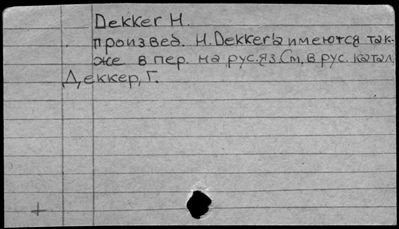 Dekker H.
произвед. H. Dekker'a имеются так-
же в пер. на рус. яз. См. в рус. катал.
Деккер, Г.